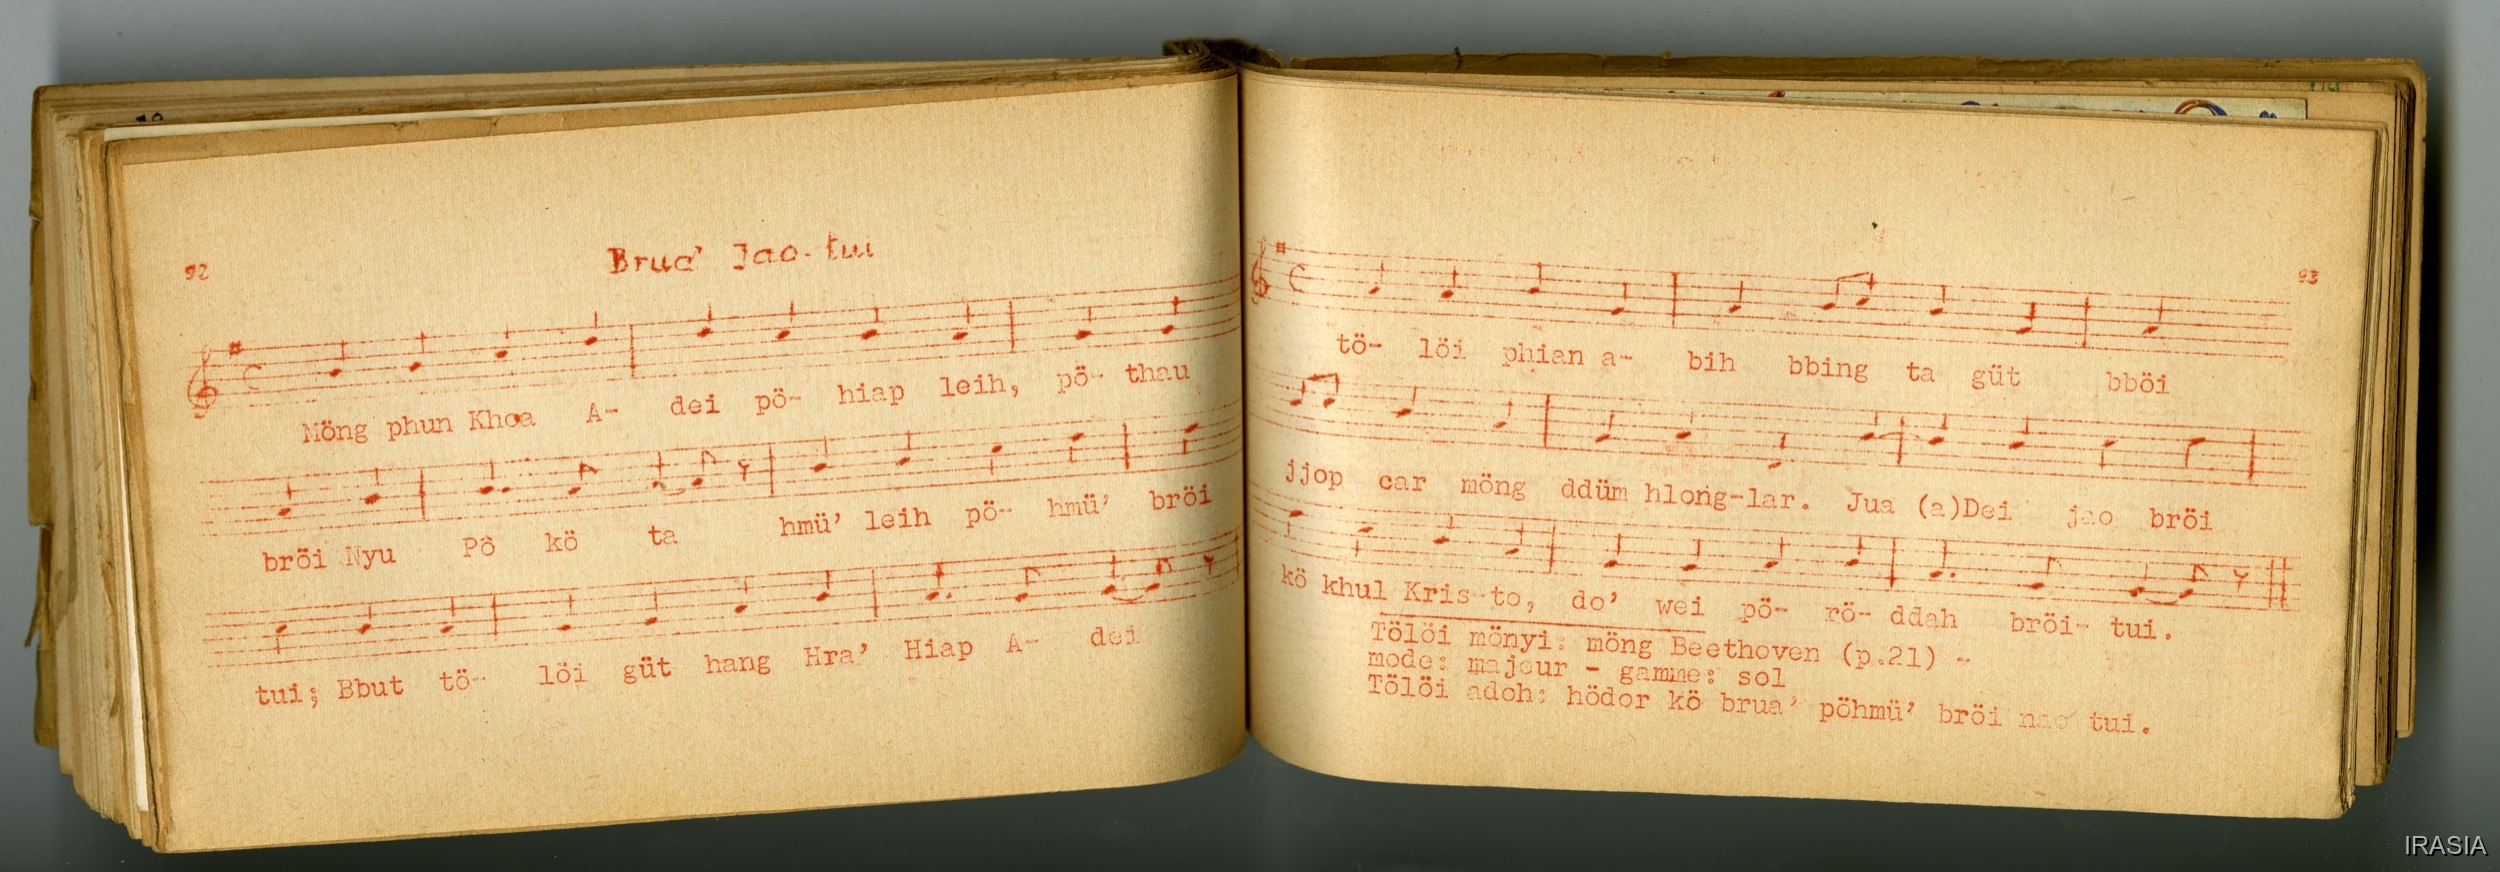 92
Brua' Jao-tui
Möng phun Khoa A- dei pö- hiap leih, pö- thau
bröi Nyu Pô kö ta hmü' leih pö- hmü' bröi
tui; Bbut tö- löi güt hang Hra' Hiap A- dei
93
tö- löi phian a- bih bbing ta güt bböi
jjop car möng ddüm hlong-lar. Jua (a)Dei jao bröi
kö khul Kris-to, do' wei pö- rö- ddah bröi- tui.
Tölöi mönyi: möng Beethoven (p.21) -
mode: majeur - gamme: sol
Tölöi adoh: hödor kö brua' pöhmü' bröi nao tui.
IRASIA